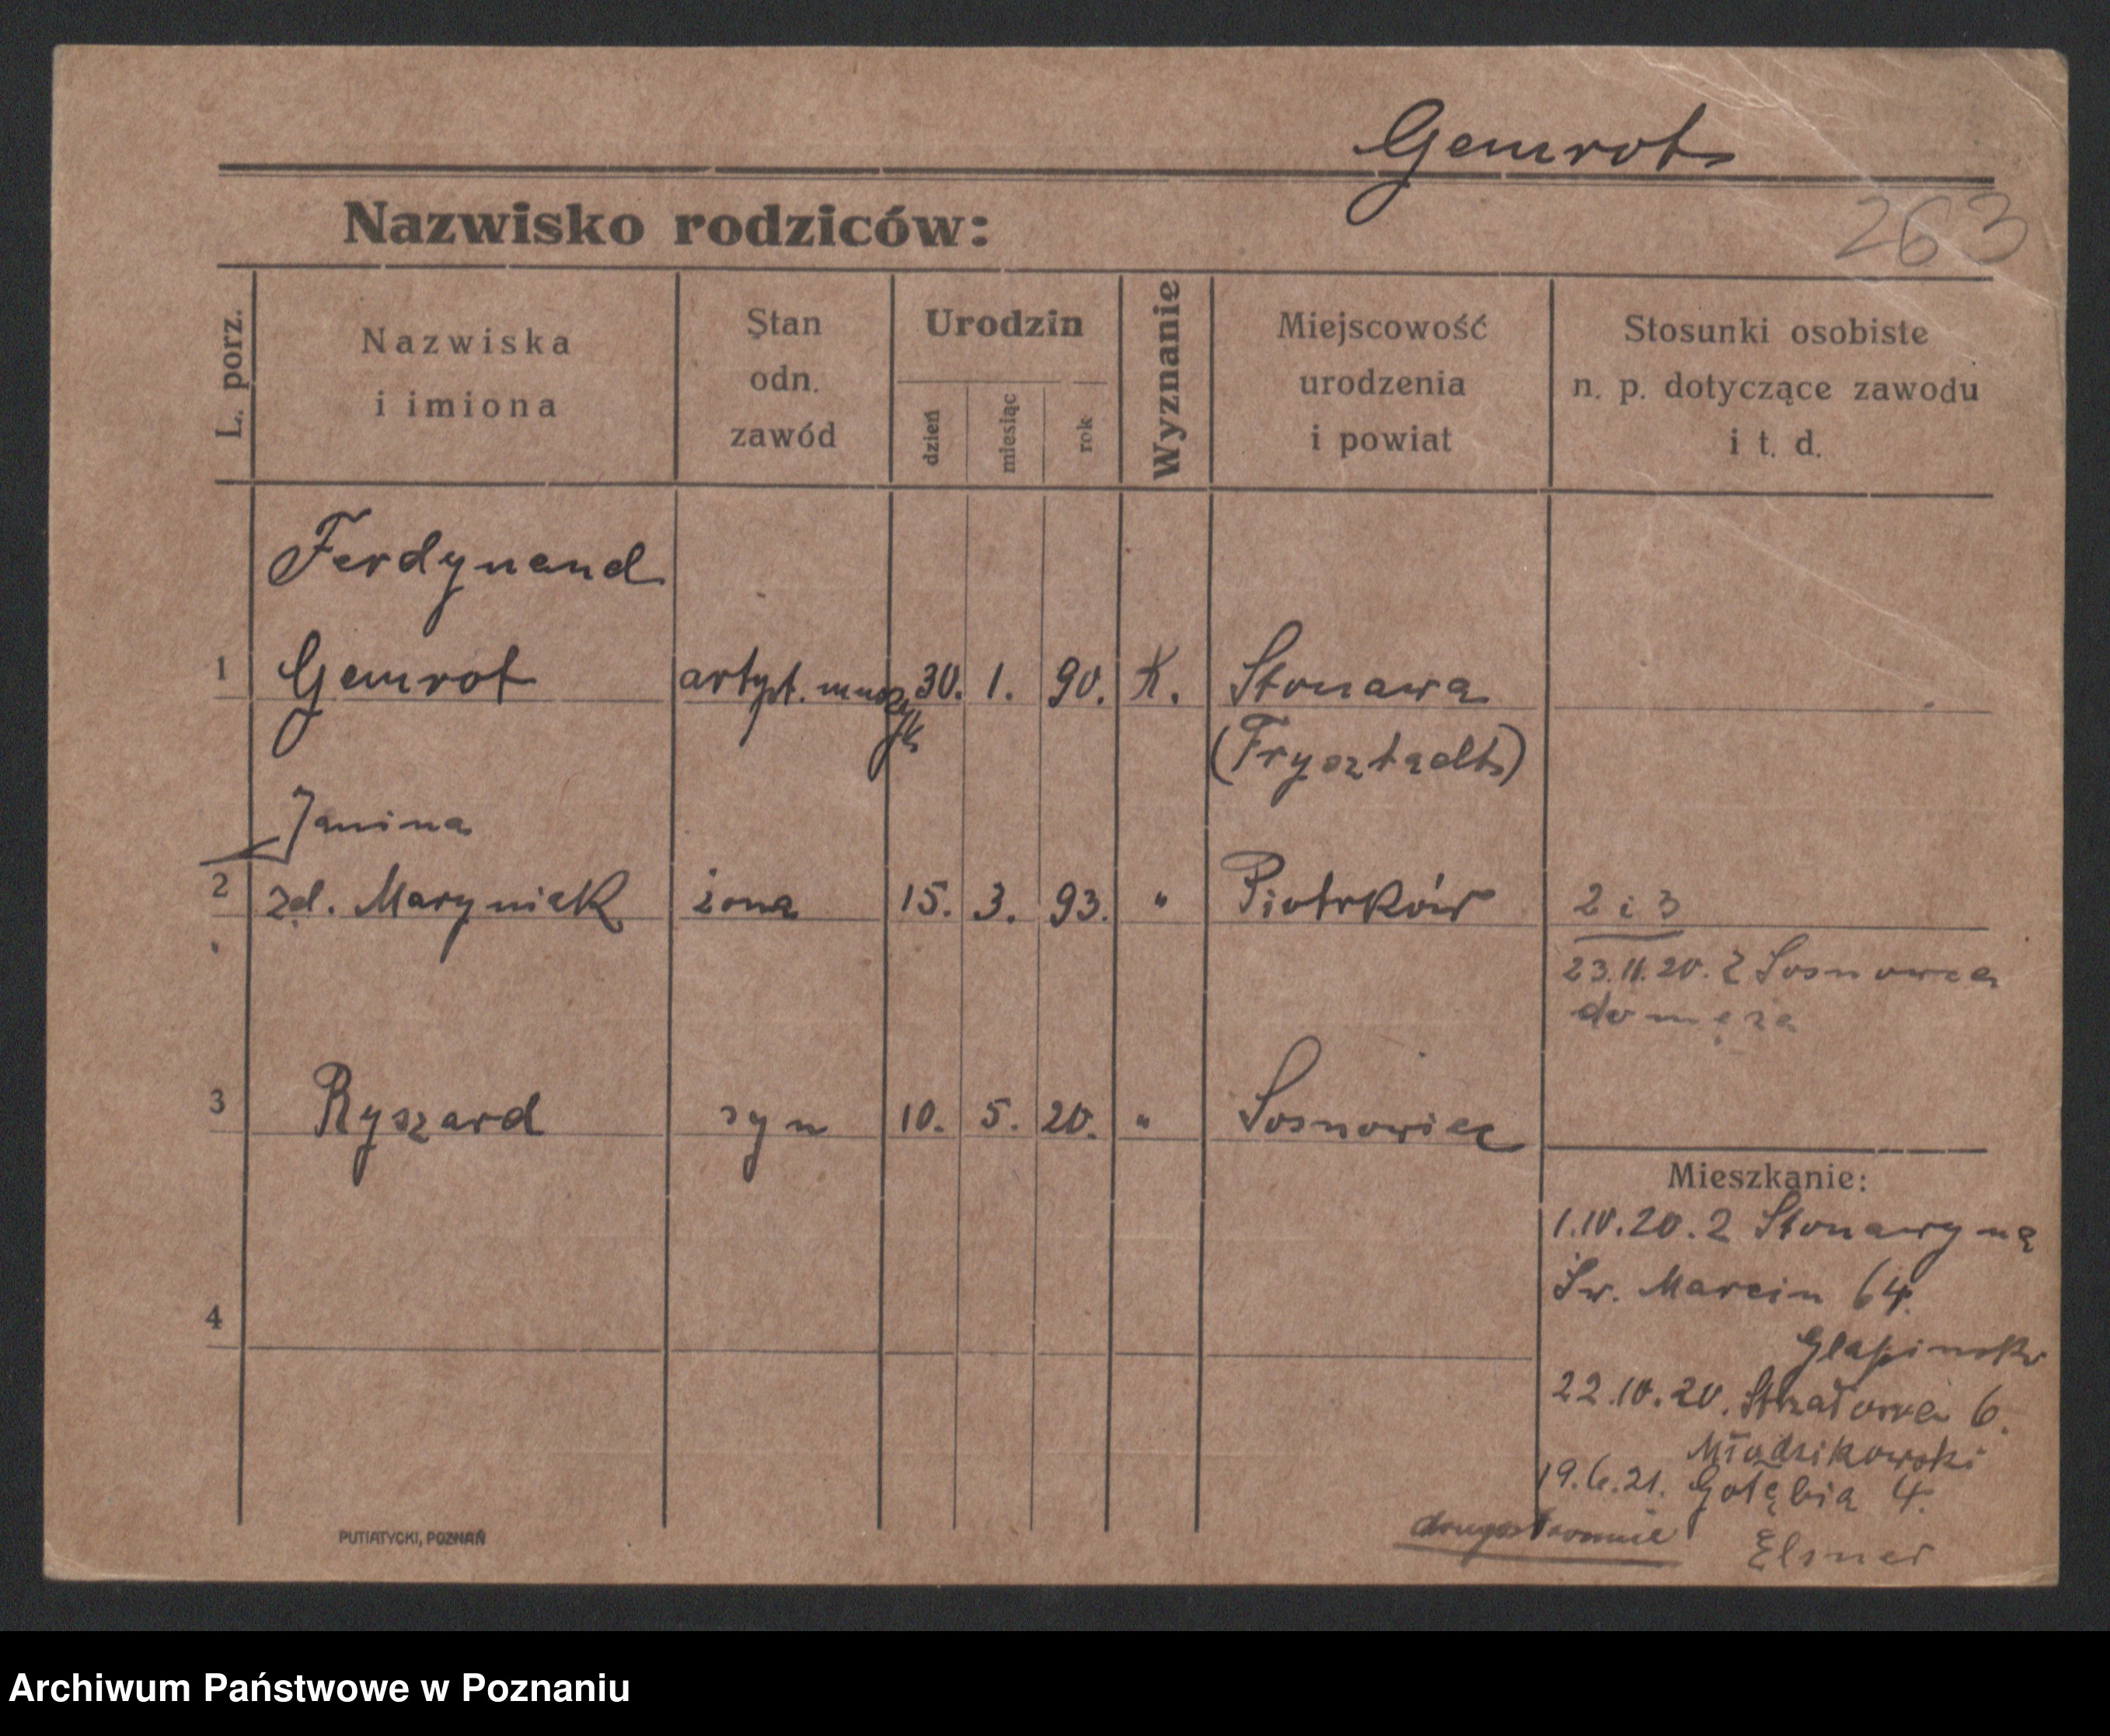 Gemrot
263
Nazwisko rodziców:
L. porz.
Nazwiska
i imiona
Stan
odn.
zawód
Urodzin
dzień
miesiąc
rok
Wyznanie
Miejscowość
urodzenia
i powiat
Stosunki osobiste
n. p. dotyczące zawodu
i t. d.
Ferdynand
1 Gemrot artyst. muzyk 30. 1. 90. K. Stonawa
(Frysztadt)
Janina
2 zd. Maryniak żona 15. 3. 93. " Piotrków 2 i 3
23.11.20. z Sosnowca
do męża
3 Ryszard syn 10. 5. 20. " Sosnowiec
Mieszkanie:
1.10.20. z Stonawy na
Św. Marcin 64.
4
22.10.20. Strzałowa 6.
Młodzikowski
19.6.21. Gołębia 4.
drugostronnie
Elsner
PUTIATYCKI, POZNAŃ
Archiwum Państwowe w Poznaniu